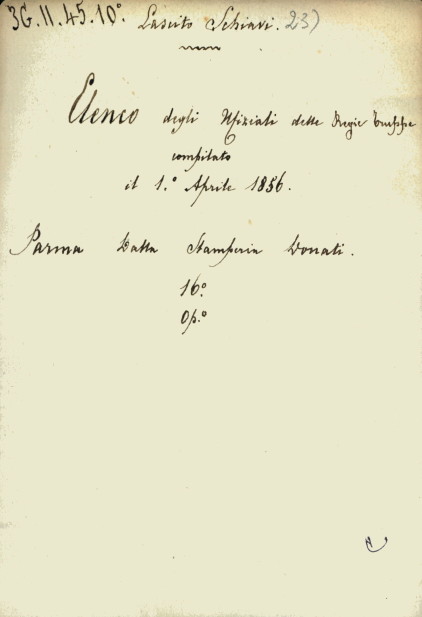 3G.II.45.10° Lascito Schiavi. 23)
Elenco degli Ufiziali delle Regie Truppe
compilato
il 1.° Aprile 1856.
Parma Dalla Stamperia Donati.
16°
Op.°